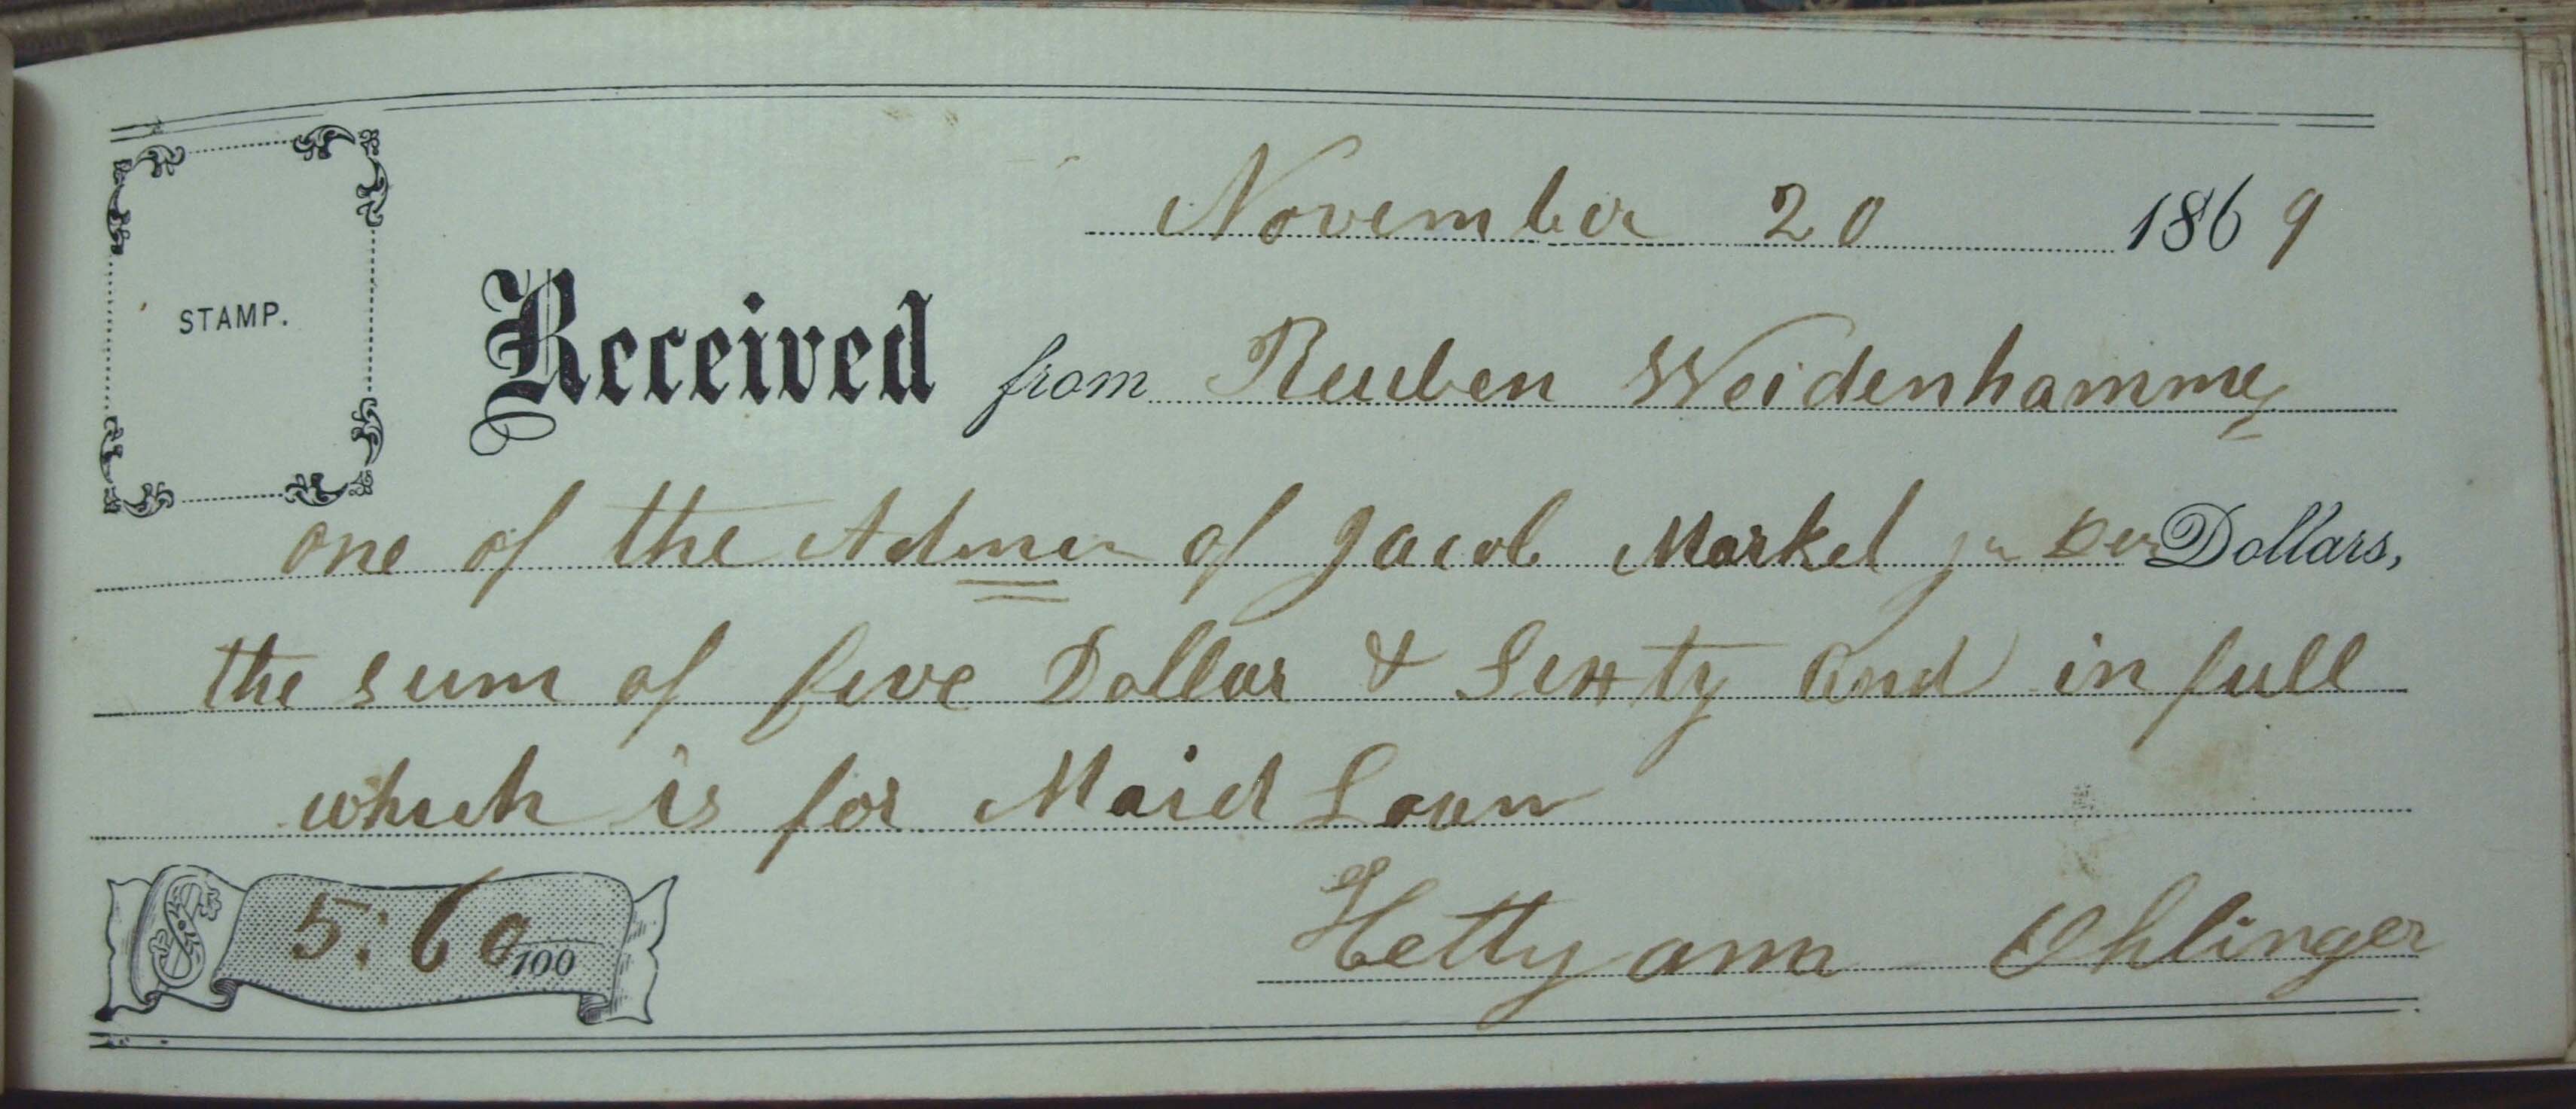 November 20 1869
STAMP.
Received from Reuben Weidenhammer
one of the Admer of Jacob Markel jr Dec Dollars,
the sum of five Dollar & Sixty and in full
which is for Maid Loan
$ 5:60/100
Hetty ann Ohlinger